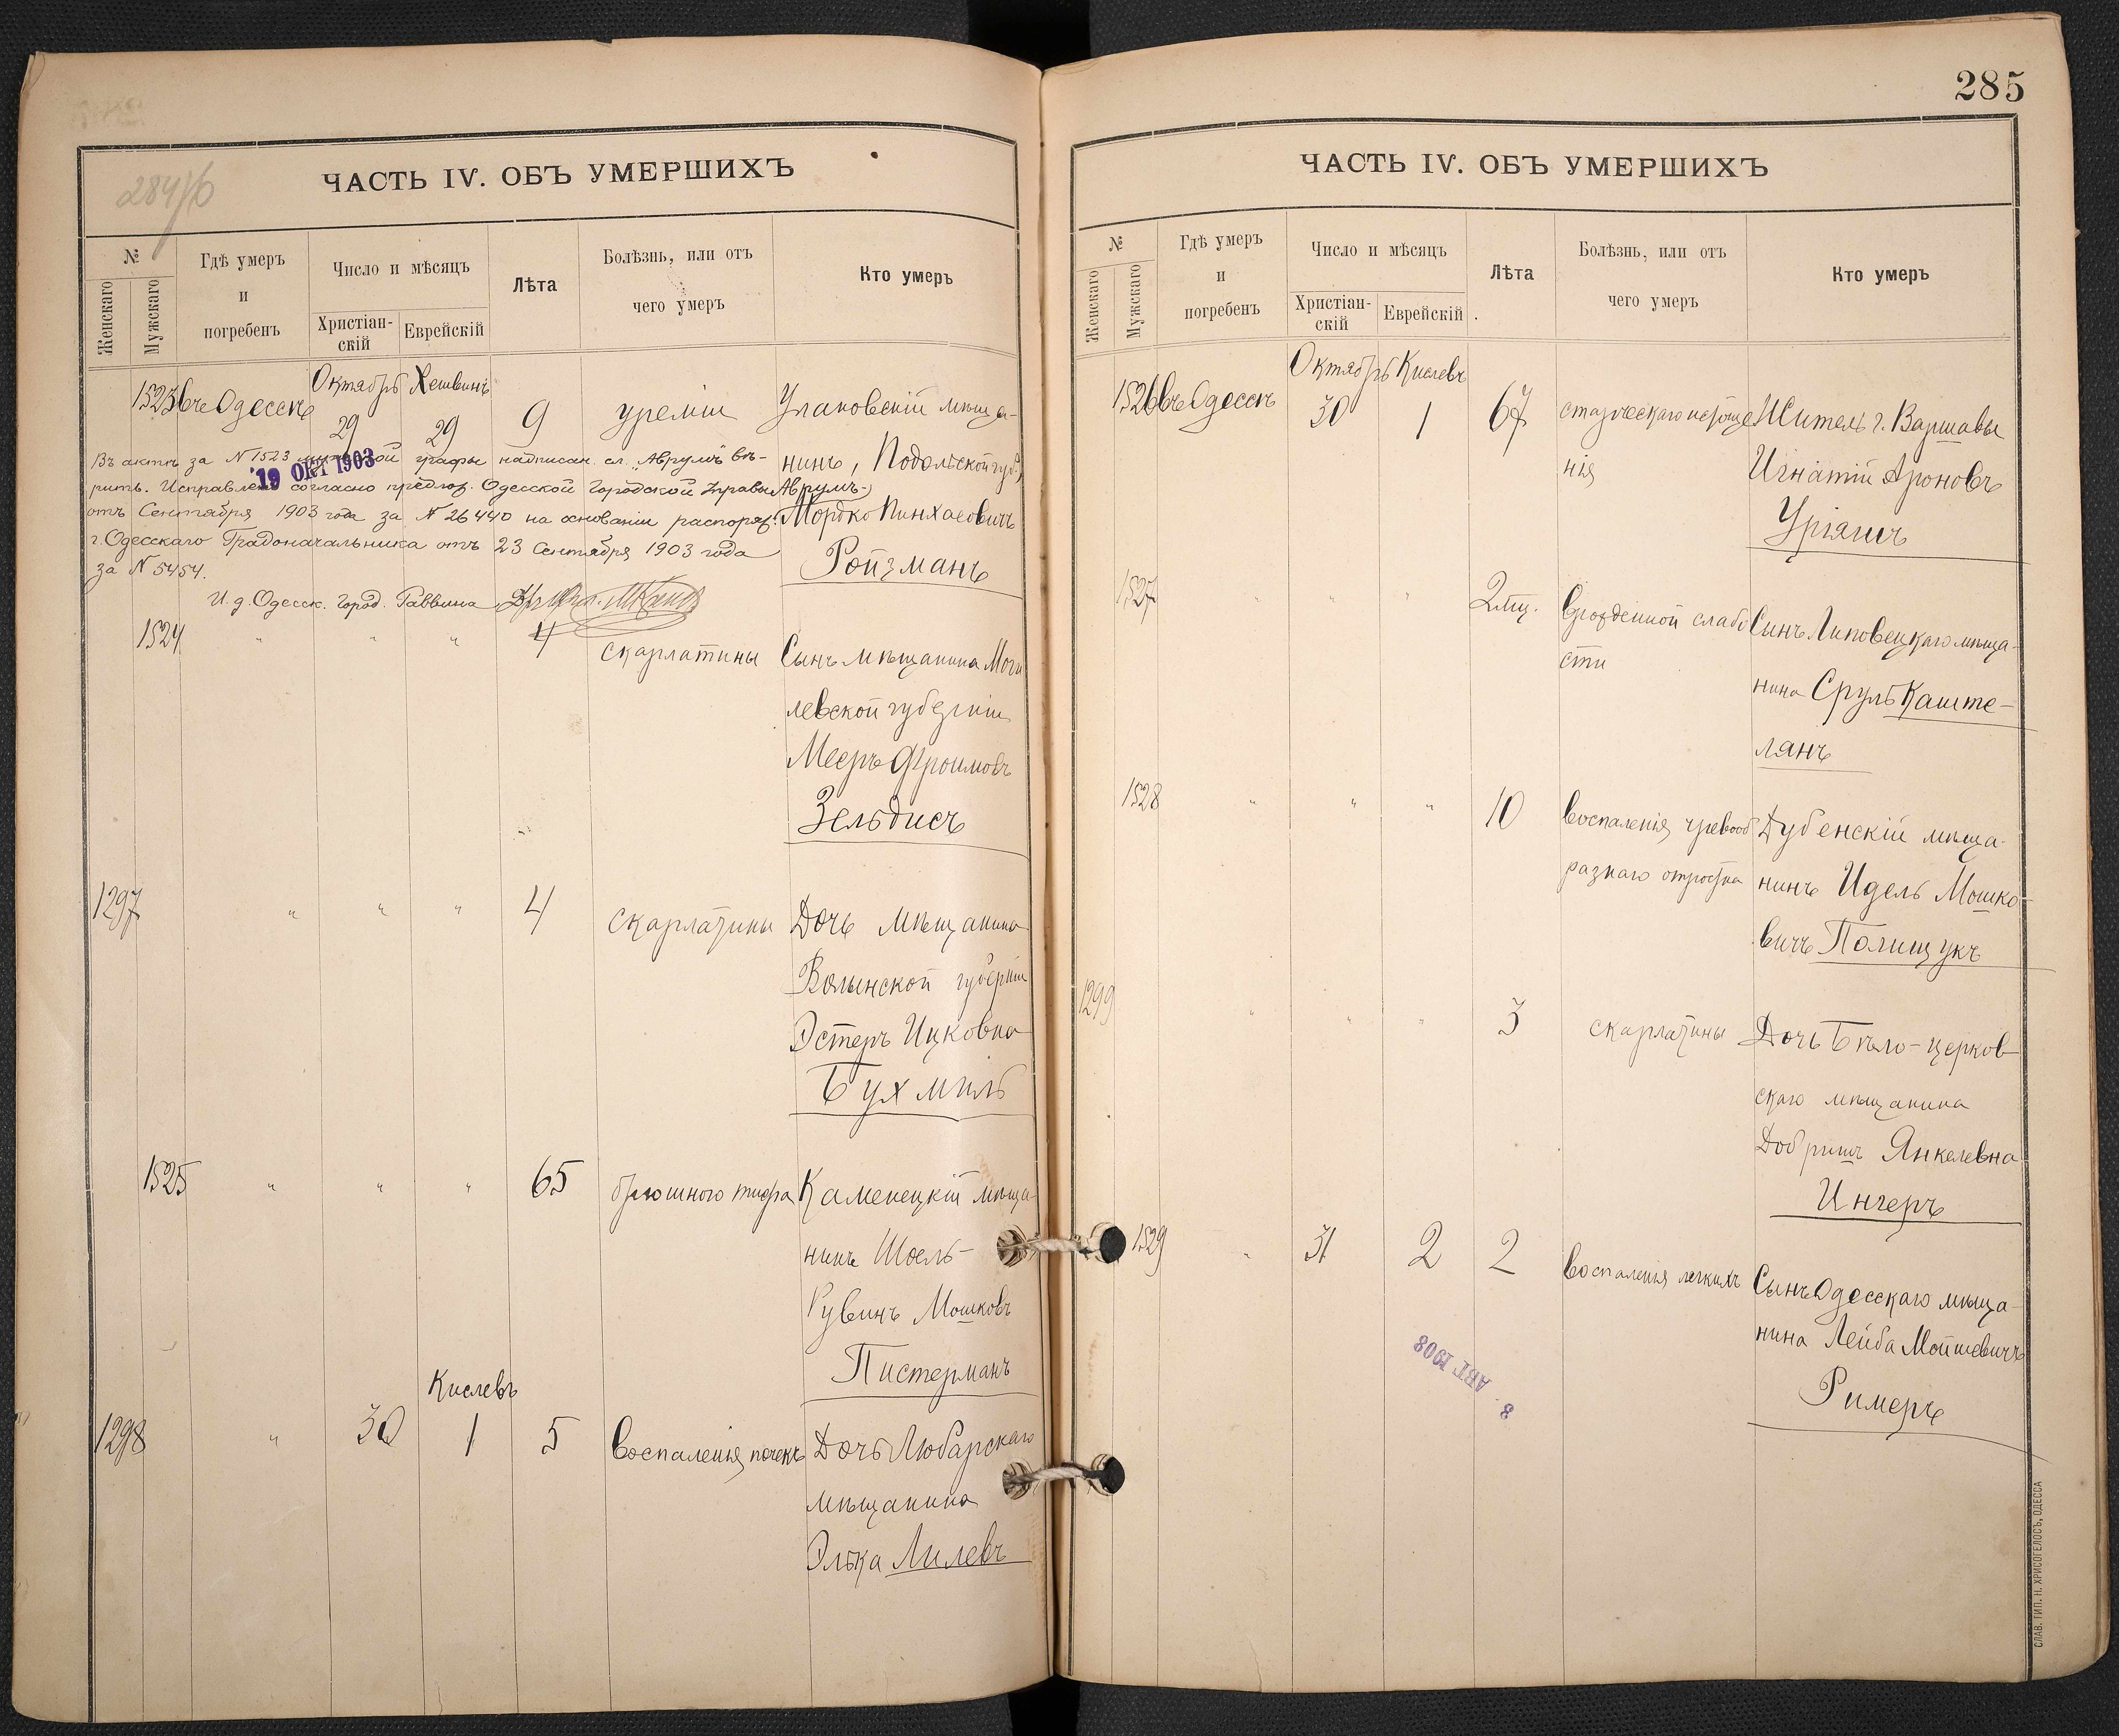 284 об
ЧАСТЬ IV. ОБЪ УМЕРШИХЪ
№
Женскаго
Мужскаго
Гдѣ умеръ
и
погребенъ
Число и мѣсяцъ
Христіан-
скій
Еврейскій
Лѣта
Болѣзнь, или отъ
чего умеръ
Кто умеръ
Октябрь Хешвинъ
1523 въ Одессѣ 29 29 9 уреміи Улановскій мѣща-
нинъ, Подольской губ.,
Аврумъ-
Мордко Пинхасовичъ
Ройзманъ
Въ актѣ за №1523 мужской графы надписан. сл. „Аврумъ" вѣ-
рить. Исправлено согласно предлож. Одесской Городской Управы
отъ Сентября 1903 года за № 26440 на основаніи распоряж.
г. Одесскаго Градоначальника отъ 23 Сентября 1903 года
за № 5454.
19 ОКТ 1903
И. д. Одесск. Город. Раввина
1524 " " " 4 скарлатины Сынъ мѣщанина Моги
левской губерніи
Мееръ Фроимовъ
Зельдисъ
1297 " " " 4 скарлатины Дочь мѣщанина
Волынской губерніи
Эстеръ Ицковна
Бухмиль
1525 " " " 65 брюшного тифа Каменецкій мѣща-
нинъ Шоель-
Рувинъ Мошковъ
Пистерманъ
Кислевъ
1298 " 30 1 5 воспаленія почекъ Дочь Любарскаго
мѣщанина
Элька Лилевъ
285
ЧАСТЬ IV. ОБЪ УМЕРШИХЪ
№
Женскаго
Мужскаго
Гдѣ умеръ
и
погребенъ
Число и мѣсяцъ
Христіан-
скій
Еврейскій
Лѣта
Болѣзнь, или отъ
чего умеръ
Кто умеръ
Октябрь Кислевъ
1526 въ Одессѣ 30 1 67 Житель г. Варшавы
нія Игнатій Ароновъ
Уріяшъ
1527 " " " 2 мц. врожденной слабо Сынъ Липовецкаго мѣща-
сти нина Сруль Каште-
лянъ
1528 " " " 10 воспаленія червооб Дубенскій мѣща-
разнаго отростка нинъ Идель Мошко-
вичъ Полищукъ
1299 " " " 3 скарлатины Дочь Бѣло-церков
скаго мѣщанина
Добришъ Янкелевна
Ингеръ
1529 " 31 2 2 воспаленія легкихъ Сынъ Одесскаго мѣща-
нина Лейба Мойшевичъ
Римеръ
8. АВГ 1908
СЛАВ. ТИП. Н. ХРИСОГЕЛОСЪ, ОДЕССА